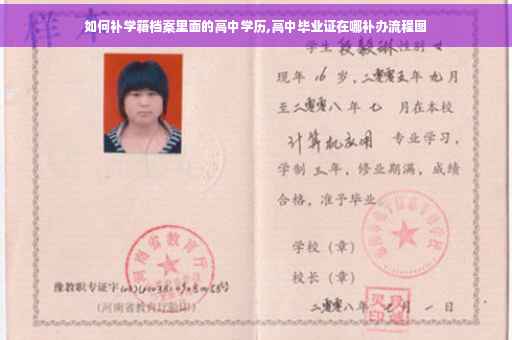 如何补学籍档案里面的高中学历,高中毕业证在哪补办流程图
样本
学生段毅琳性别女
现年16岁,二零零五年九月
至二零零八年七月在本校
计算机应用 专业学习,
学制三年,修业期满,成绩
合格,准予毕业
学校(章)
校长(章)
二零零八年七月一日
河南省教育厅
豫教职专证字
(河南省教育厅验印)